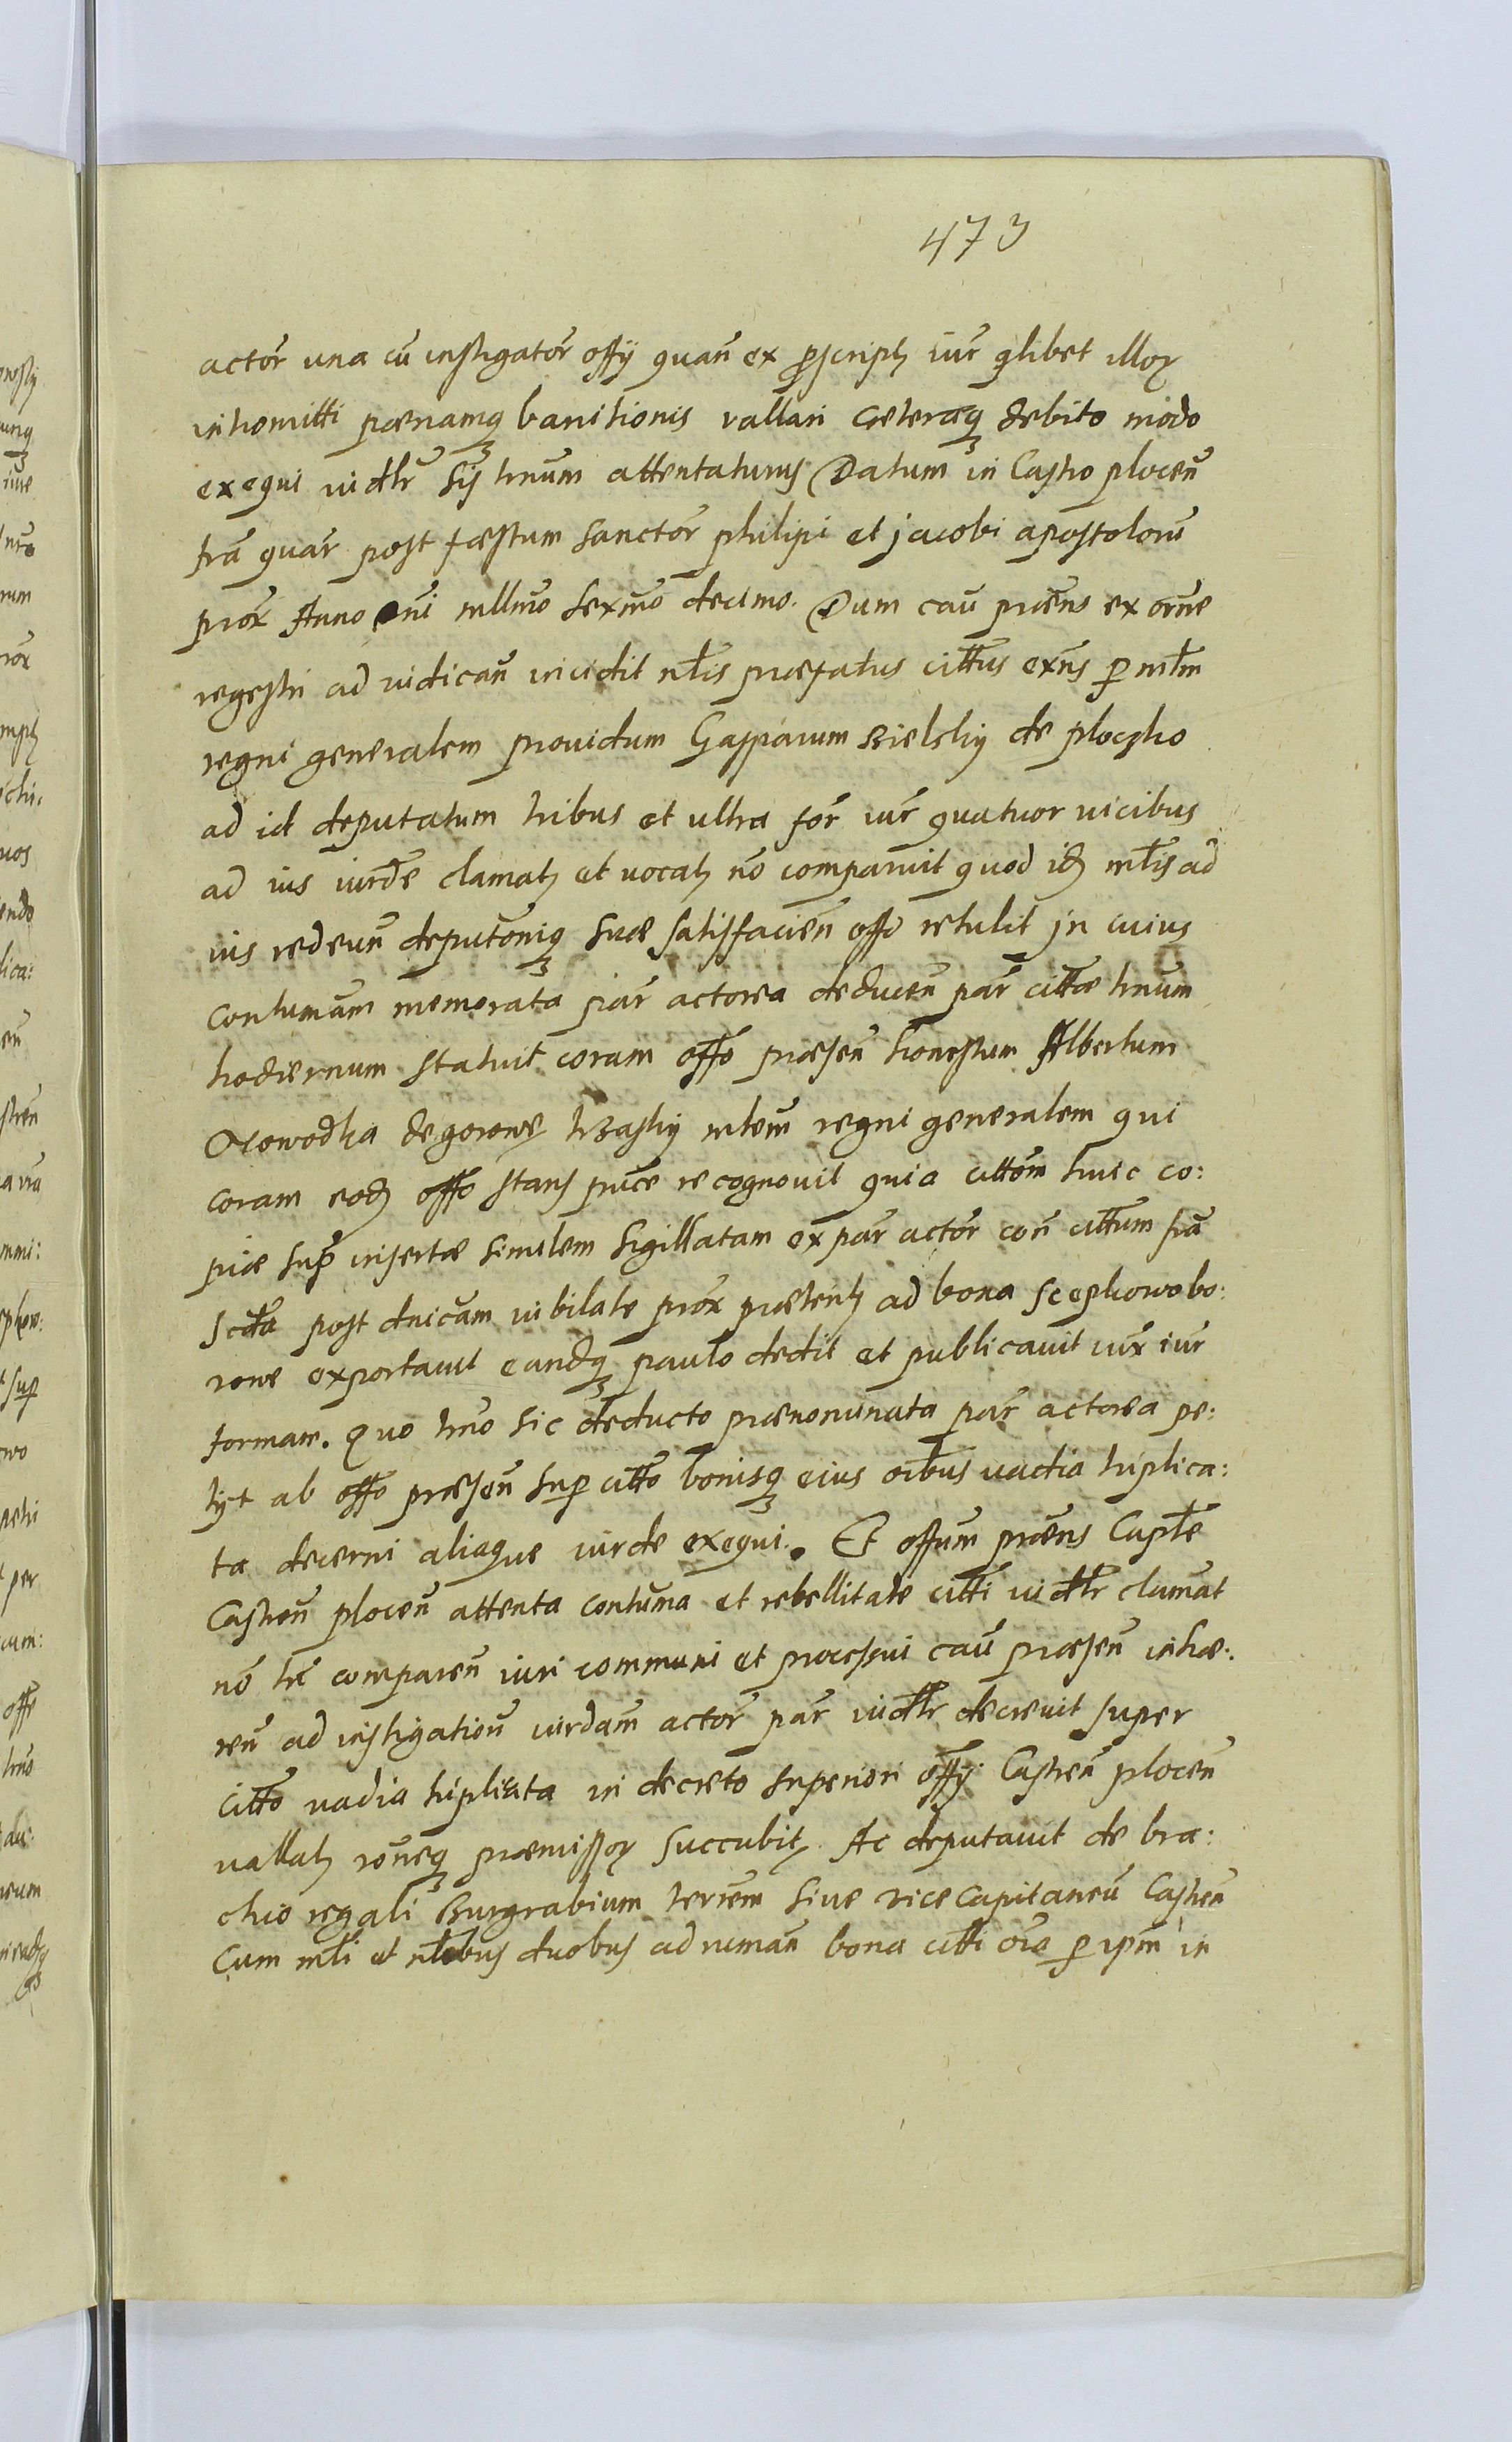 473
actor una cū instigator offy quan ex pscript iur qlibet illor
intromitti pœnamq banitionis vallari Cæteraq debito modo
exequi iudtr sy trnum attentaturus Datum in Castro plocen
fra quar post fæstum Sanctor philipi et jacobi apostolorū
prox Anno Dni mllmo sexmo decimo. Dum cau præns ex orne
regestri ad iudican incidit ntlis præfatus cittus exns p mtlm
regni generalem providum Gasparum Bielsky de ploczko
ad id deputatum tribus et ultra for iur quatuor vicibus
ad ius iurde clamat et vocat nō comparuit quod id mtlis ad
ius redeun deputoniq suæ satisfacien offo retulit jn cuius
contumam memorata par actorea deducen par cittæ trnum
hodiernum statuit coram offo præsen honestum Albertum
de gorowe mtem regni generalem qui
coram eod offo stans pnce recognovit quia cittom huic co:
piæ sup insertæ similem sigillatam ex par actor con cittum fra
Scda post dnicam iubilate prox præterit ad bona Scepkowo bo:
rowe exportavit eandq paulo dedit et publicavit iux iur
formam. Quo trno sic deducto prænominata par actorea pe:
tyt ab offo præsen sup citto bonisq eius oibus vadia triplica:
ta decerni aliaque iurde exequi. Et offum præns Captle
Castren plocen attenta contuma et rebellitate citti iudtr clamat
nō tn comparen iuri communi et processui cau præsen inhæ:
ren ad instigationū iurdam actor par iudtr decrevit super
citto vadia triplicata in decreto superiori offy Castren plocen
vallat roneq præmissor succubit Ac deputavit de bra:
chio regali Burgrabium terrem sive vice capitaneū Castren
Cum mtli et ntlibus duobus ad riman bona citti oia p ipm in